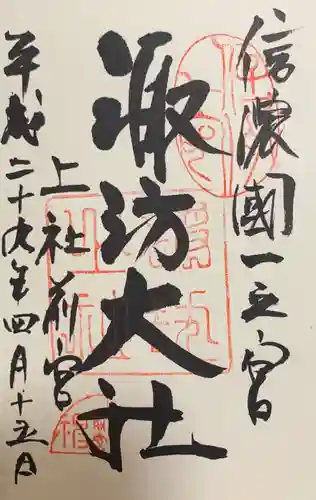 信濃國一之宮
諏訪大社
上社前宮
平成二十九年四月十五日